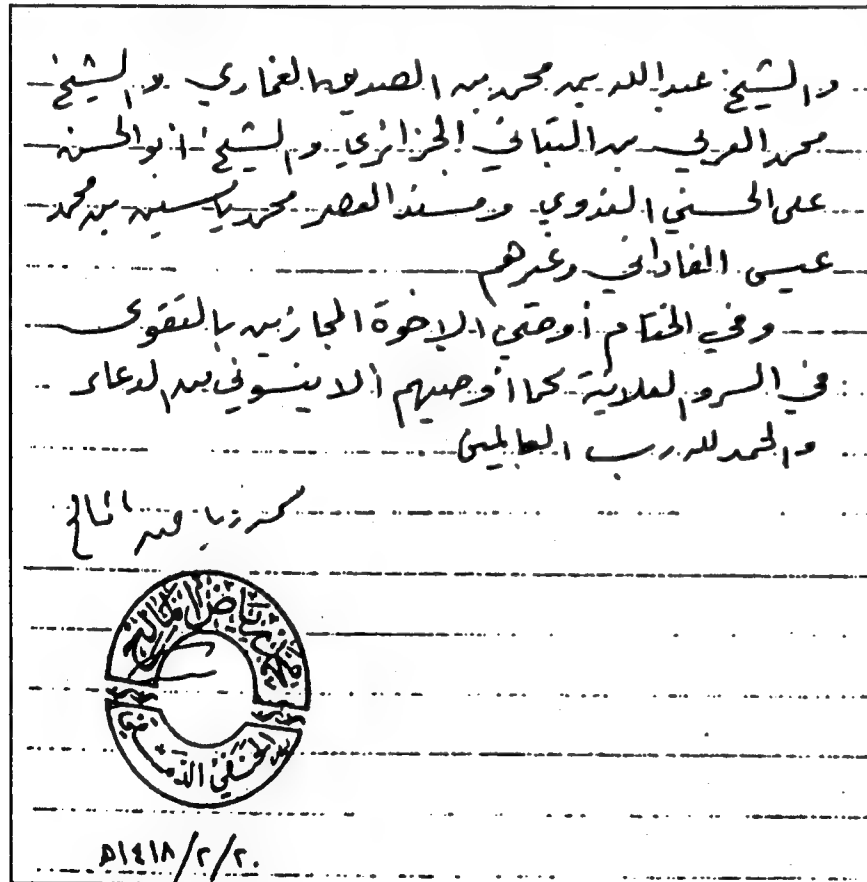 والشيخ عبدالله بن محمد بن الصديق الغماري والشيخ
محمد العربي بن التباني الجزائري والشيخ أبو الحسن
علي الحسني الندوي ومسند العصر محمد ياسين بن محمد
عيسى الفاداني وغيرهم
وفي الختام أوصي الإخوة المجازين بالتقوى
في السر والعلانية كما أوصيهم ألا ينسوني من الدعاء
والحمد لله رب العالمين
محمد رياض المالح
محمد رياض المالح
الحنفي الدمشقي
٢٠/٢/١٤١٨هـ